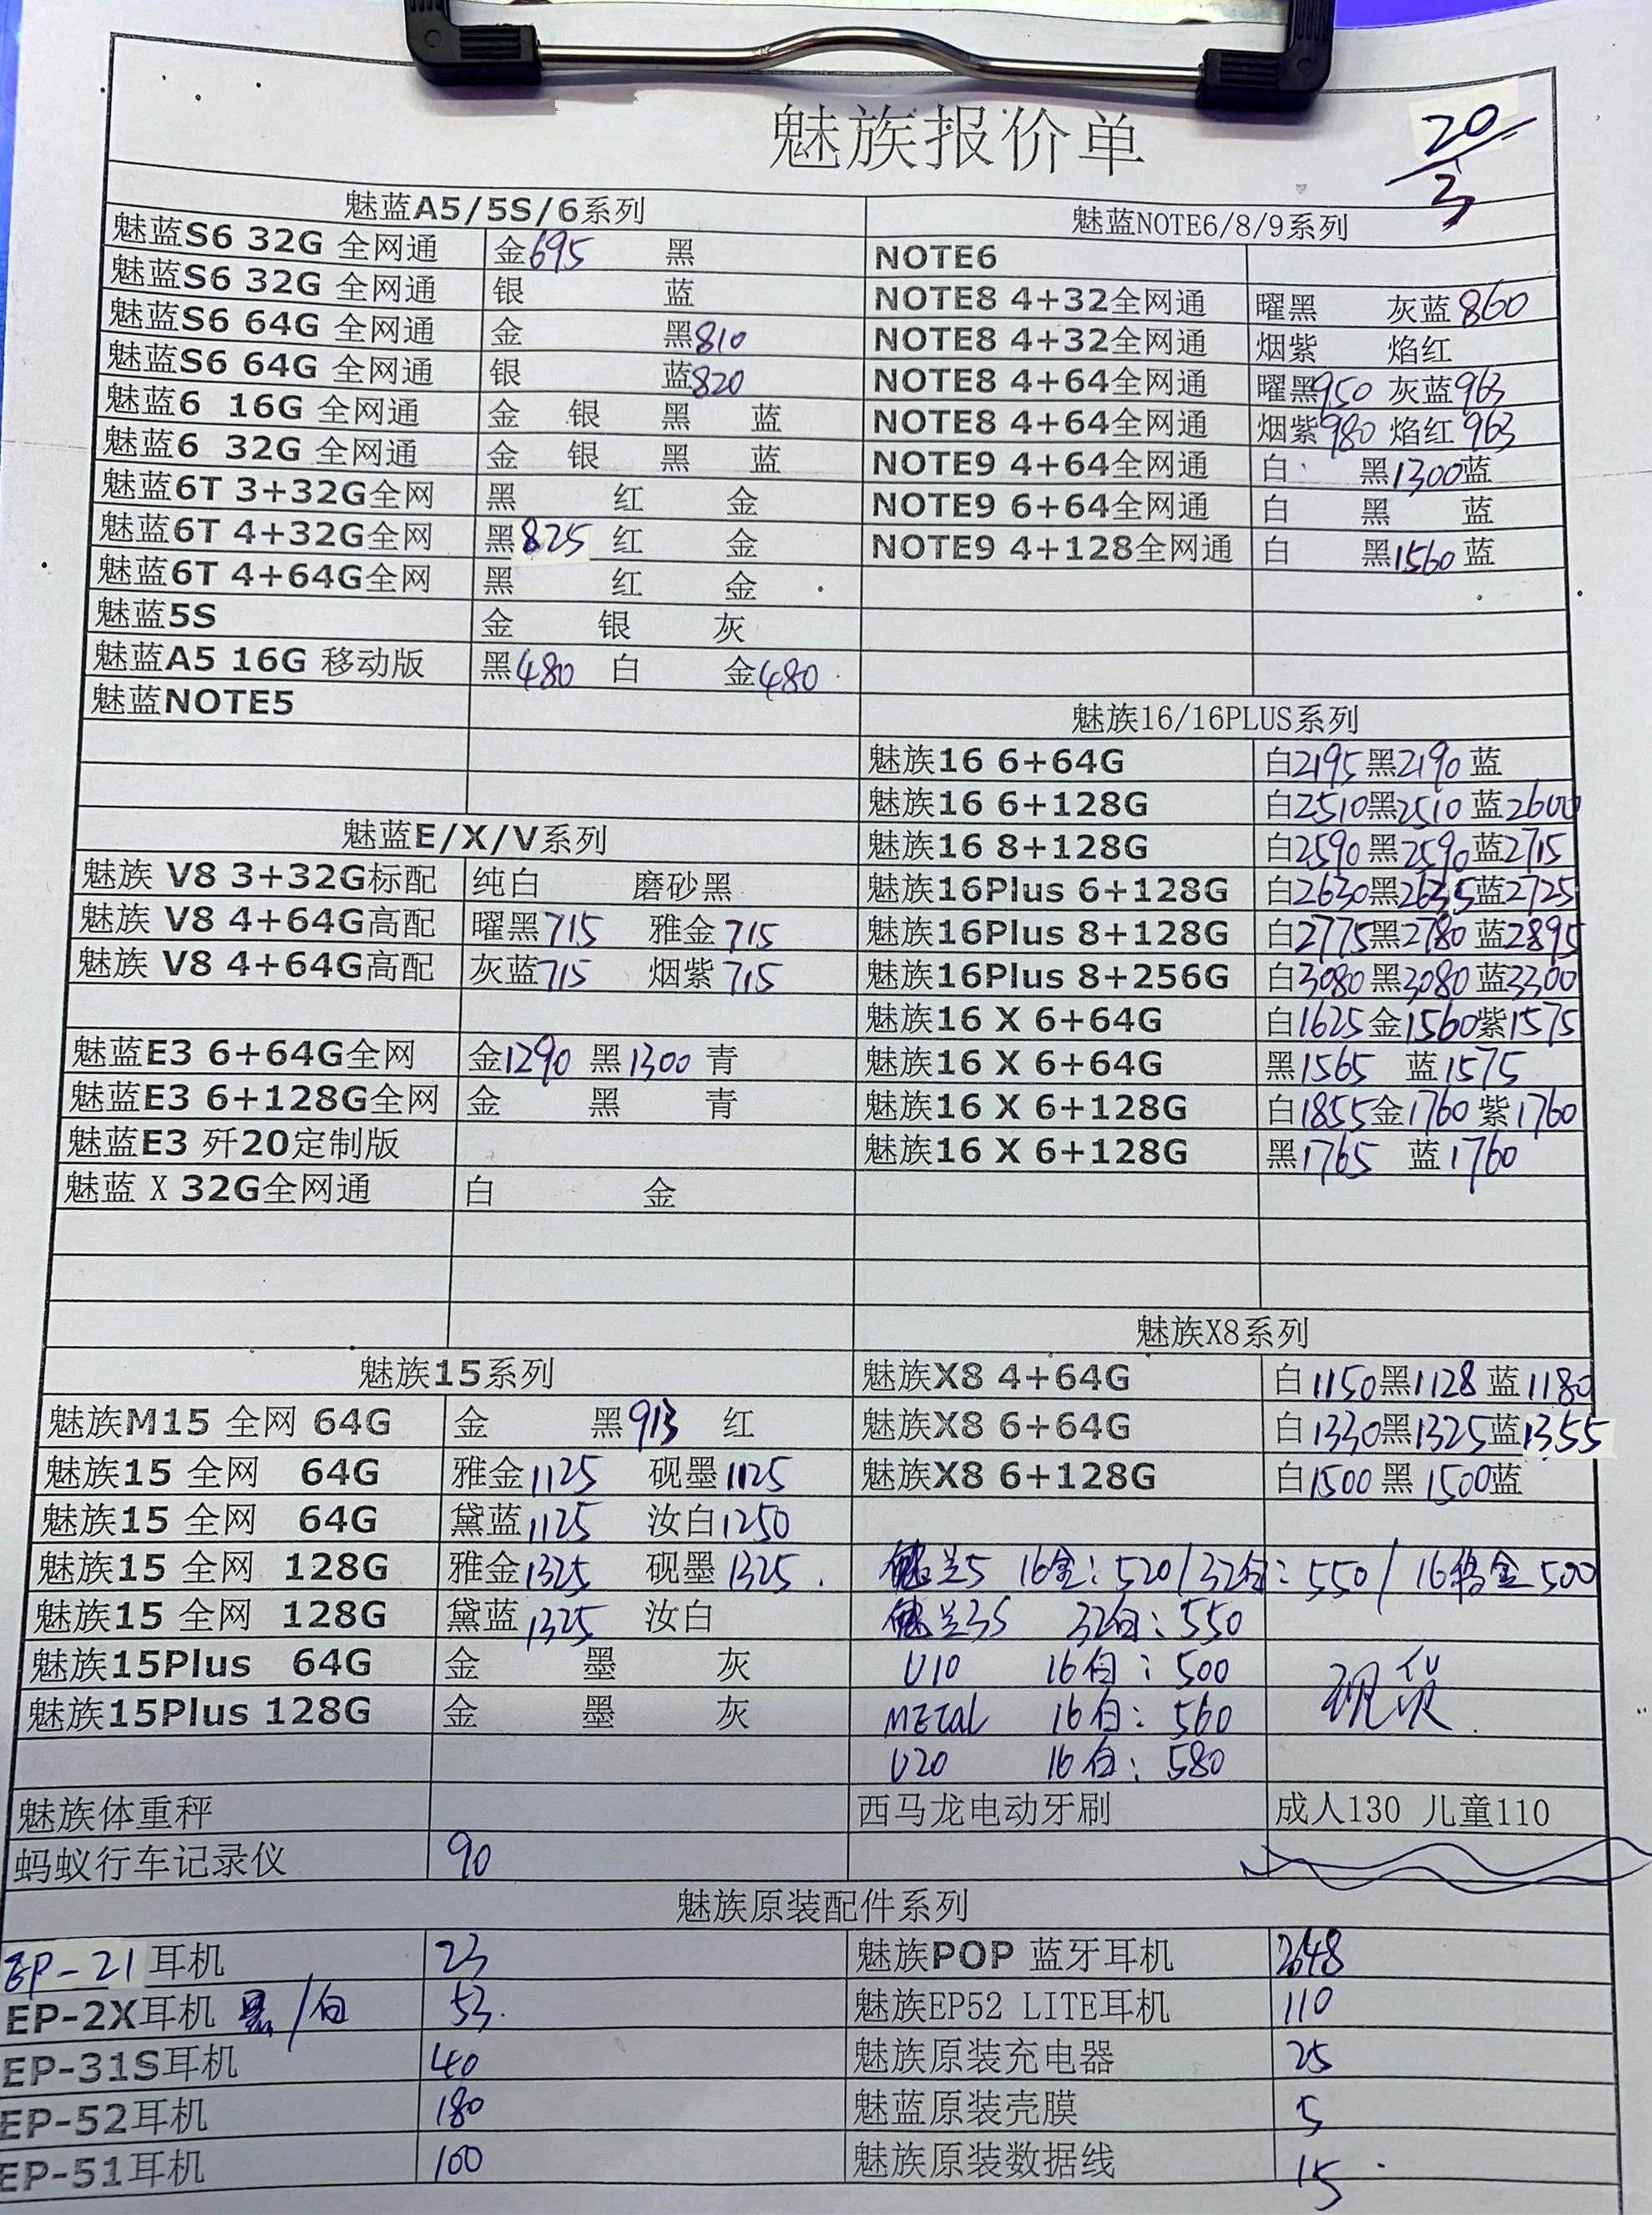 魅族报价单
20/3
魅蓝A5/5S/6系列
魅蓝S6 32G 全网通 金695 黑
魅蓝S6 32G 全网通 银 蓝
魅蓝S6 64G 全网通 金 黑810
魅蓝S6 64G 全网通 银 蓝820
魅蓝6 16G 全网通 金 银 黑 蓝
魅蓝6 32G 全网通 金 银 黑 蓝
魅蓝6T 3+32G全网 黑 红 金
魅蓝6T 4+32G全网 黑825 红 金
魅蓝6T 4+64G全网 黑 红 金
魅蓝5S 金 银 灰
魅蓝A5 16G 移动版 黑480 白 金480
魅蓝NOTE5
魅蓝E/X/V系列
魅族 V8 3+32G标配 纯白 磨砂黑
魅族 V8 4+64G高配 曜黑715 雅金715
魅族 V8 4+64G高配 灰蓝715 烟紫715
魅蓝E3 6+64G全网 金1290 黑1300 青
魅蓝E3 6+128G全网 金 黑 青
魅蓝E3 歼20定制版
魅蓝 X 32G全网通 白 金
魅族15系列
魅族M15 全网 64G 金 黑913 红
魅族15 全网 64G 雅金1125 砚墨1125
魅族15 全网 64G 黛蓝1125 汝白1250
魅族15 全网 128G 雅金1325 砚墨1325
魅族15 全网 128G 黛蓝1325 汝白
魅族15Plus 64G 金 墨 灰
魅族15Plus 128G 金 墨 灰
魅族体重秤
蚂蚁行车记录仪 90
魅蓝NOTE6/8/9系列
NOTE6
NOTE8 4+32全网通 曜黑 灰蓝860
NOTE8 4+32全网通 烟紫 焰红
NOTE8 4+64全网通 曜黑950 灰蓝963
NOTE8 4+64全网通 烟紫980 焰红963
NOTE9 4+64全网通 白 黑1300蓝
NOTE9 6+64全网通 白 黑 蓝
NOTE9 4+128全网通 白 黑1560蓝
魅族16/16PLUS系列
魅族16 6+64G 白2195黑2190 蓝
魅族16 6+128G 白2510黑2510 蓝2600
魅族16 8+128G 白2590黑2590蓝2715
魅族16Plus 6+128G 白2630黑2635蓝2725
魅族16Plus 8+128G 白2775黑2780 蓝2895
魅族16Plus 8+256G 白3080黑3080蓝3300
魅族16 X 6+64G 白1625金1560紫1575
魅族16 X 6+64G 黑1565 蓝1575
魅族16 X 6+128G 白1855金1760紫1760
魅族16 X 6+128G 黑1765 蓝1760
魅族X8系列
魅族X8 4+64G 白1150黑1128 蓝1180
魅族X8 6+64G 白1330黑1325蓝1355
魅族X8 6+128G 白1500黑1500蓝
兰5 16金:520/32白:550/16 金500
兰3S 32白:550
U10 16白:500
METAL 16白:560
U20 16白:580
现货
西马龙电动牙刷 成人130 儿童110
魅族原装配件系列
EP-21耳机 23
EP-2X耳机 黑/白 53
EP-31S耳机 40
EP-52耳机 180
EP-51耳机 100
魅族POP 蓝牙耳机 248
魅族EP52 LITE耳机 110
魅族原装充电器 25
魅蓝原装壳膜 5
魅族原装数据线 15